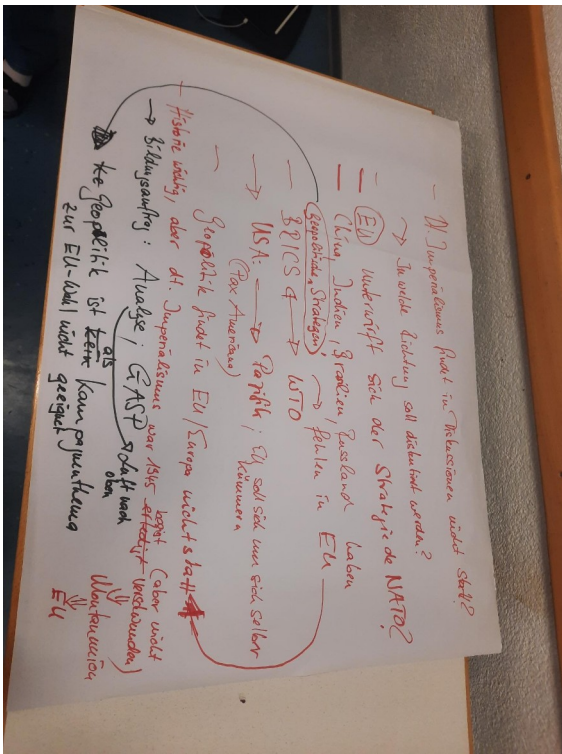 - Dt. Imperialismus findet in Diskussionen nicht statt?
→ In welche Richtung soll diskutiert werden?
- EU unterwirft sich der Strategie de NATO?
- China, Indien, Brasilien, Russland haben
geopolitische Strategien → fehlen in EU
- BRICS ↔ WTO
→ USA: → Pazifik; EU soll sich um sich selber
(Pax Americana) kümmern
- Geopolitik findet in EU/Europa nicht statt
- Historie wichtig, aber dt. Imperialismus war 1945 besiegt (aber nicht
verschwunden)
→ Bildungsauftrag: Analyse; GASP → läuft nach
oben
Montanunion
EU
Geopolitik ist als Kampagnenthema
zur EU-Wahl nicht
geeignet